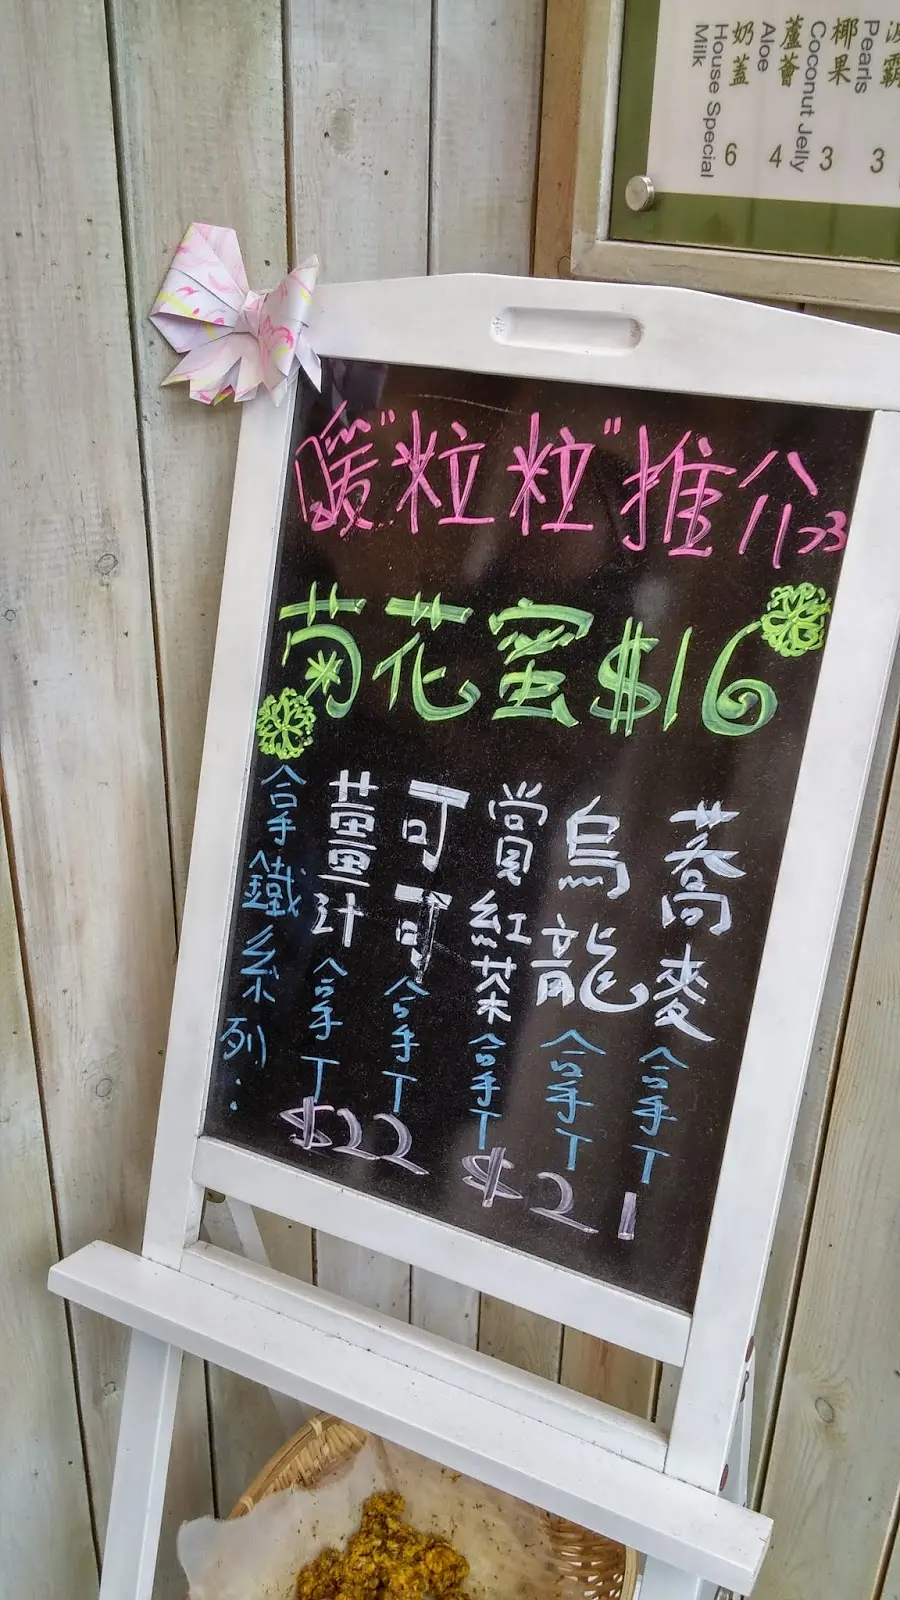 波霸 3
Pearls
椰果 3
Coconut Jelly
蘆薈 4
Aloe
奶蓋 6
House Special
Milk
暖"粒粒"推介
菊花蜜$16
拿鐵系列:
薑汁拿丁
可可拿丁
$22
賞紅茶拿丁
烏龍拿丁
蕎麥拿丁
$21